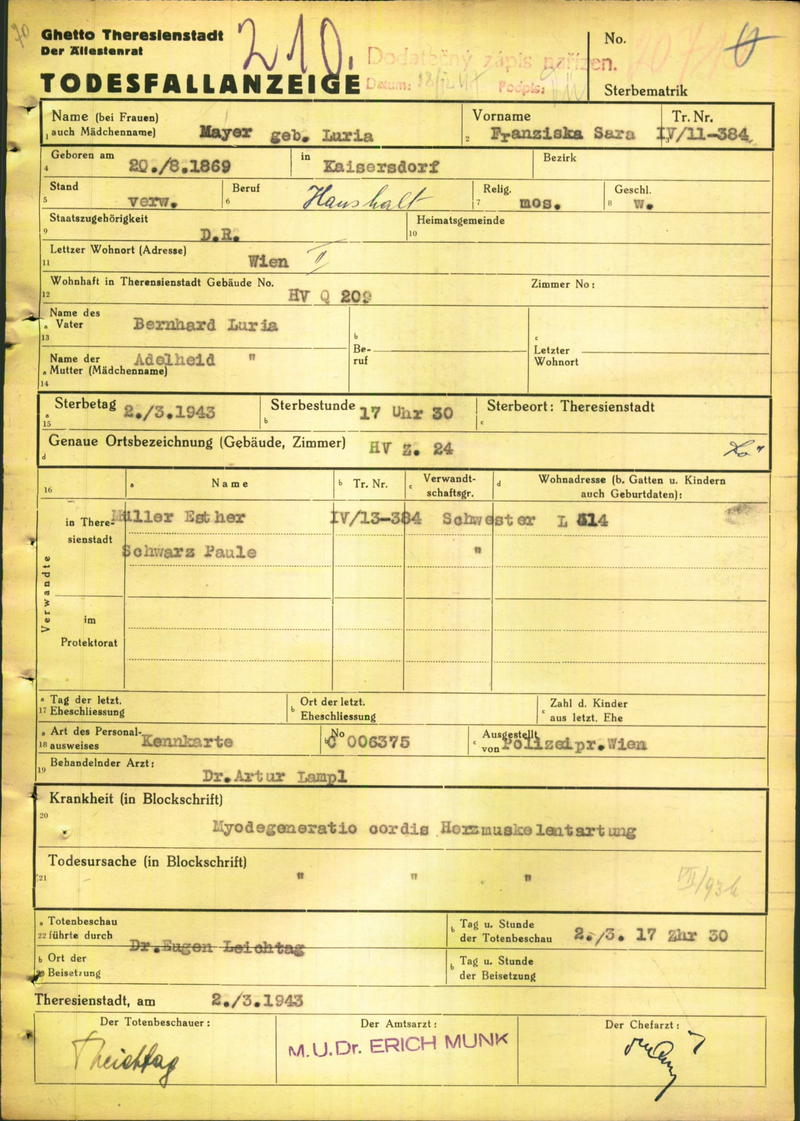 Ghetto Theresienstadt
Der Ältestenrat
210.
Dodatečný zápis nařízen.
Datum: Podpis:
No.
TODESFALLANZEIGE
Sterbematrik
Name (bei Frauen) Vorname Tr. Nr.
1 auch Mädchenname) Mayer geb. Luria 2 Franziska Sara IV/11-384
Geboren am in Bezirk
4 20./8.1869 Kaisersdorf
Stand Beruf Relig. Geschl.
5 verw. 6 Haushalt 7 mos. 8 w.
Staatszugehörigkeit Heimatsgemeinde
9 D.R. 10
Lettzer Wohnort (Adresse)
11 Wien II
Wohnhaft in Therensienstadt Gebäude No. Zimmer No:
12 HV Q 209
Name des
a Vater Bernhard Luria b c
13
Be- Letzter
Name der Adelheid " ruf Wohnort
a Mutter (Mädchenname)
14
a Sterbetag 2./3.1943 b Sterbestunde 17 Uhr 30 c Sterbeort: Theresienstadt
15
Genaue Ortsbezeichnung (Gebäude, Zimmer) HV Z. 24
d
16 a Name b Tr. Nr. c Verwandt- d Wohnadresse (b. Gatten u. Kindern
schaftsgr. auch Geburtdaten):
in There- Müller Esther IV/13-384 Schwester L 414
sienstadt
Schwarz Paule "
Verwandte
im
Protektorat
a Tag der letzt. b Ort der letzt. c Zahl d. Kinder
17 Eheschliessung Eheschliessung aus letzt. Ehe
a Art des Personal- b No c Ausgestellt
18 ausweises Kennkarte C 006375 von Polizeipr.Wien
Behandelnder Arzt:
19 Dr.Artur Lampl
Krankheit (in Blockschrift)
20
Myodegeneratio cordis Herzmuskelentartung
Todesursache (in Blockschrift)
21 " " "
a Totenbeschau b Tag u. Stunde
22 führte durch Dr.Eugen Leichtag der Totenbeschau 2./3. 17 Uhr 30
b Ort der b Tag u. Stunde
Beisetzung der Beisetzung
Theresienstadt, am 2./3.1943
Der Totenbeschauer: Der Amtsarzt: Der Chefarzt:
M.U.Dr. ERICH MUNK